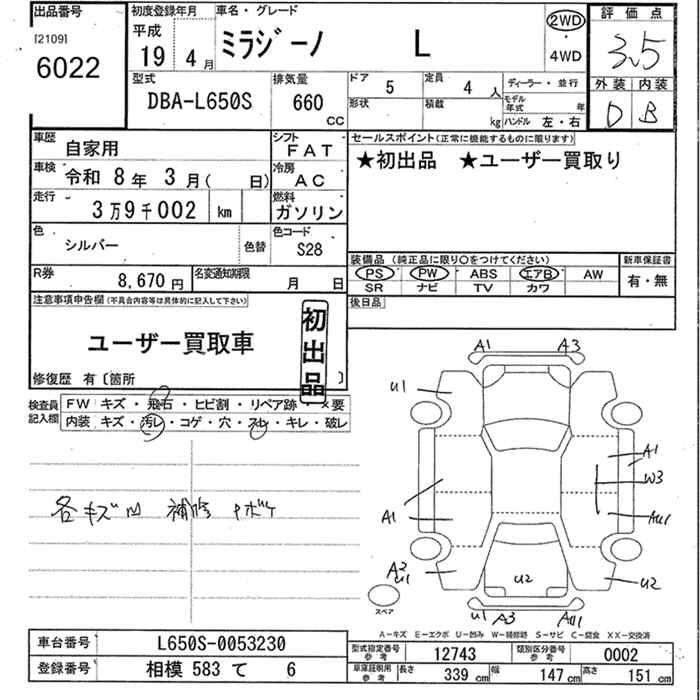 出品番号
[2109]
6022
初度登録年月
平成
19 4月
車名・グレード
ミラジーノ L
2WD
・
4WD
評価点
3.5
外装 内装
D B
型式
DBA-L650S
排気量
660 CC
ドア 5
定員 4人
ディーラー・並行
形状
積載 kg
モデル年式 年
ハンドル 左・右
車歴 自家用
シフト FAT
車検 令和 8年 3月( 日)
冷房 AC
走行 3万9千002 km
燃料 ガソリン
色 シルバー 色替
色コード S28
R券 8,670円
名変通知期限 月 日
セールスポイント(正常に機能するものに限ります)
★初出品 ★ユーザー買取り
装備品(純正品に限り○をつけてください)
PS PW ABS エアB AW
SR ナビ TV カワ
新車保証書
有・無
後日品
注意事項申告欄(不具合内容等は具体的に記入して下さい)
ユーザー買取車
初出品
修復歴 有〔箇所 〕
検査員記入欄
FW キズ・飛石・ヒビ割・リペア跡・×要
内装 キズ・汚レ・コゲ・穴・スレ・キレ・破レ
各キズ凹 補修
A1 A3
U1
A1
W3
AU1
A1
A3
U1
U2
U2
U1 A3 AU1
スペア
A-キズ E-エクボ U-凹み W-補修跡 S-サビ C-腐食 XX-交換済
車台番号 L650S-0053230
登録番号 相模 583 て 6
型式指定番号 参考 12743
類別区分番号 参考 0002
車庫証明用 参考 長さ 339 cm 幅 147 cm 高さ 151 cm